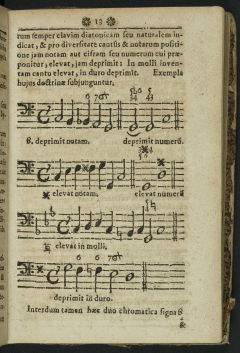 13
rum semper clavim diatonicam seu naturalem in-
dicat, & pro diversitate cantûs & notarum positi-
one jam notam aut cifram seu numerum cui præ-
ponitur, elevat, jam deprimit: In molli inven-
tam cantu elevat, in duro deprimit. Exempla
hujus doctrinæ subjunguntur.
B. deprimit notam. deprimit numerū.
elevat notam. elevat numerū
elevat in molli.
deprimit in duro.
Interdum tamen hæc duo chromatica signa
&